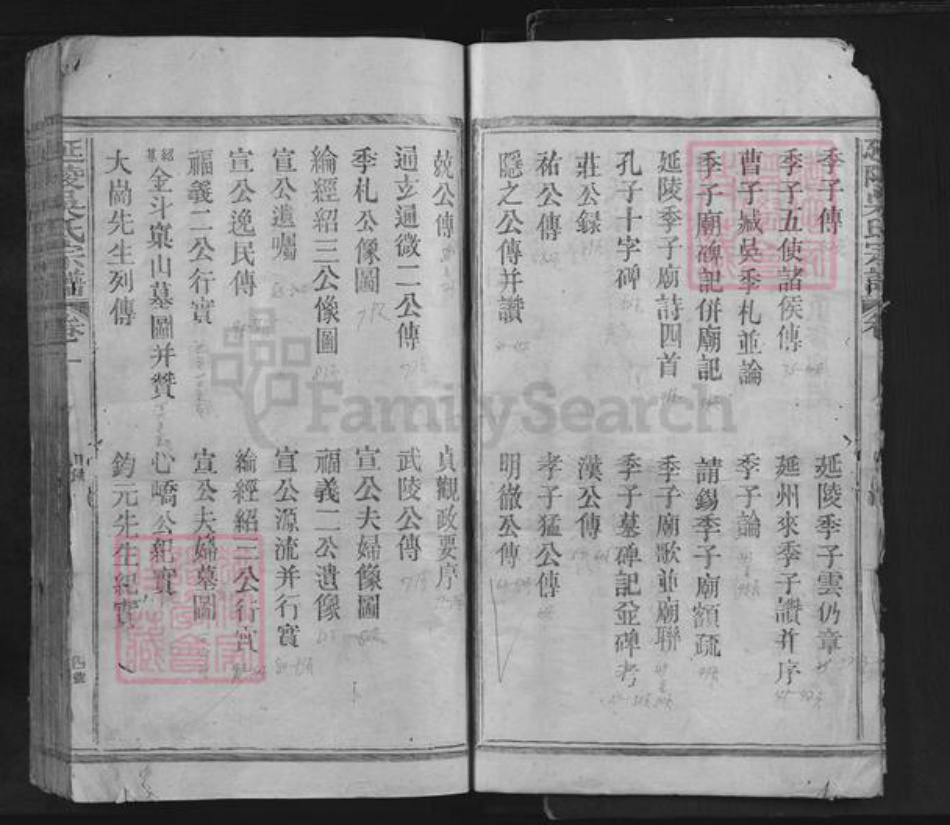 季子傳
延陵季子雲仍章
季子五使諸侯傳
延州來季子讚并序
曹子臧吳季札並論
季子論
季子廟碑記併廟記
請錫季子廟額疏
延陵季子廟詩四首
季子廟歌並廟聯
孔子十字碑
季子墓碑記並碑考
莊公錄
漢公傳
祐公傳
孝子猛公傳
隱之公傳并讚
明徹公傳
兢公傳
貞觀政要序
通玄通微二公傳
武陵公傳
季札公像圖
宣公夫婦像圖
綸經紹三公像圖
福義二公遺像
宣公遺囑
宣公源流并行實
宣公逸民傳
綸經紹三公行實
福義二公行實
宣公夫婦墓圖
金斗稟山墓圖并贊
心嶠公紀實
大崗先生列傳
鈞元先生紀實
延陵吳氏宗譜
卷一
FamilySearch